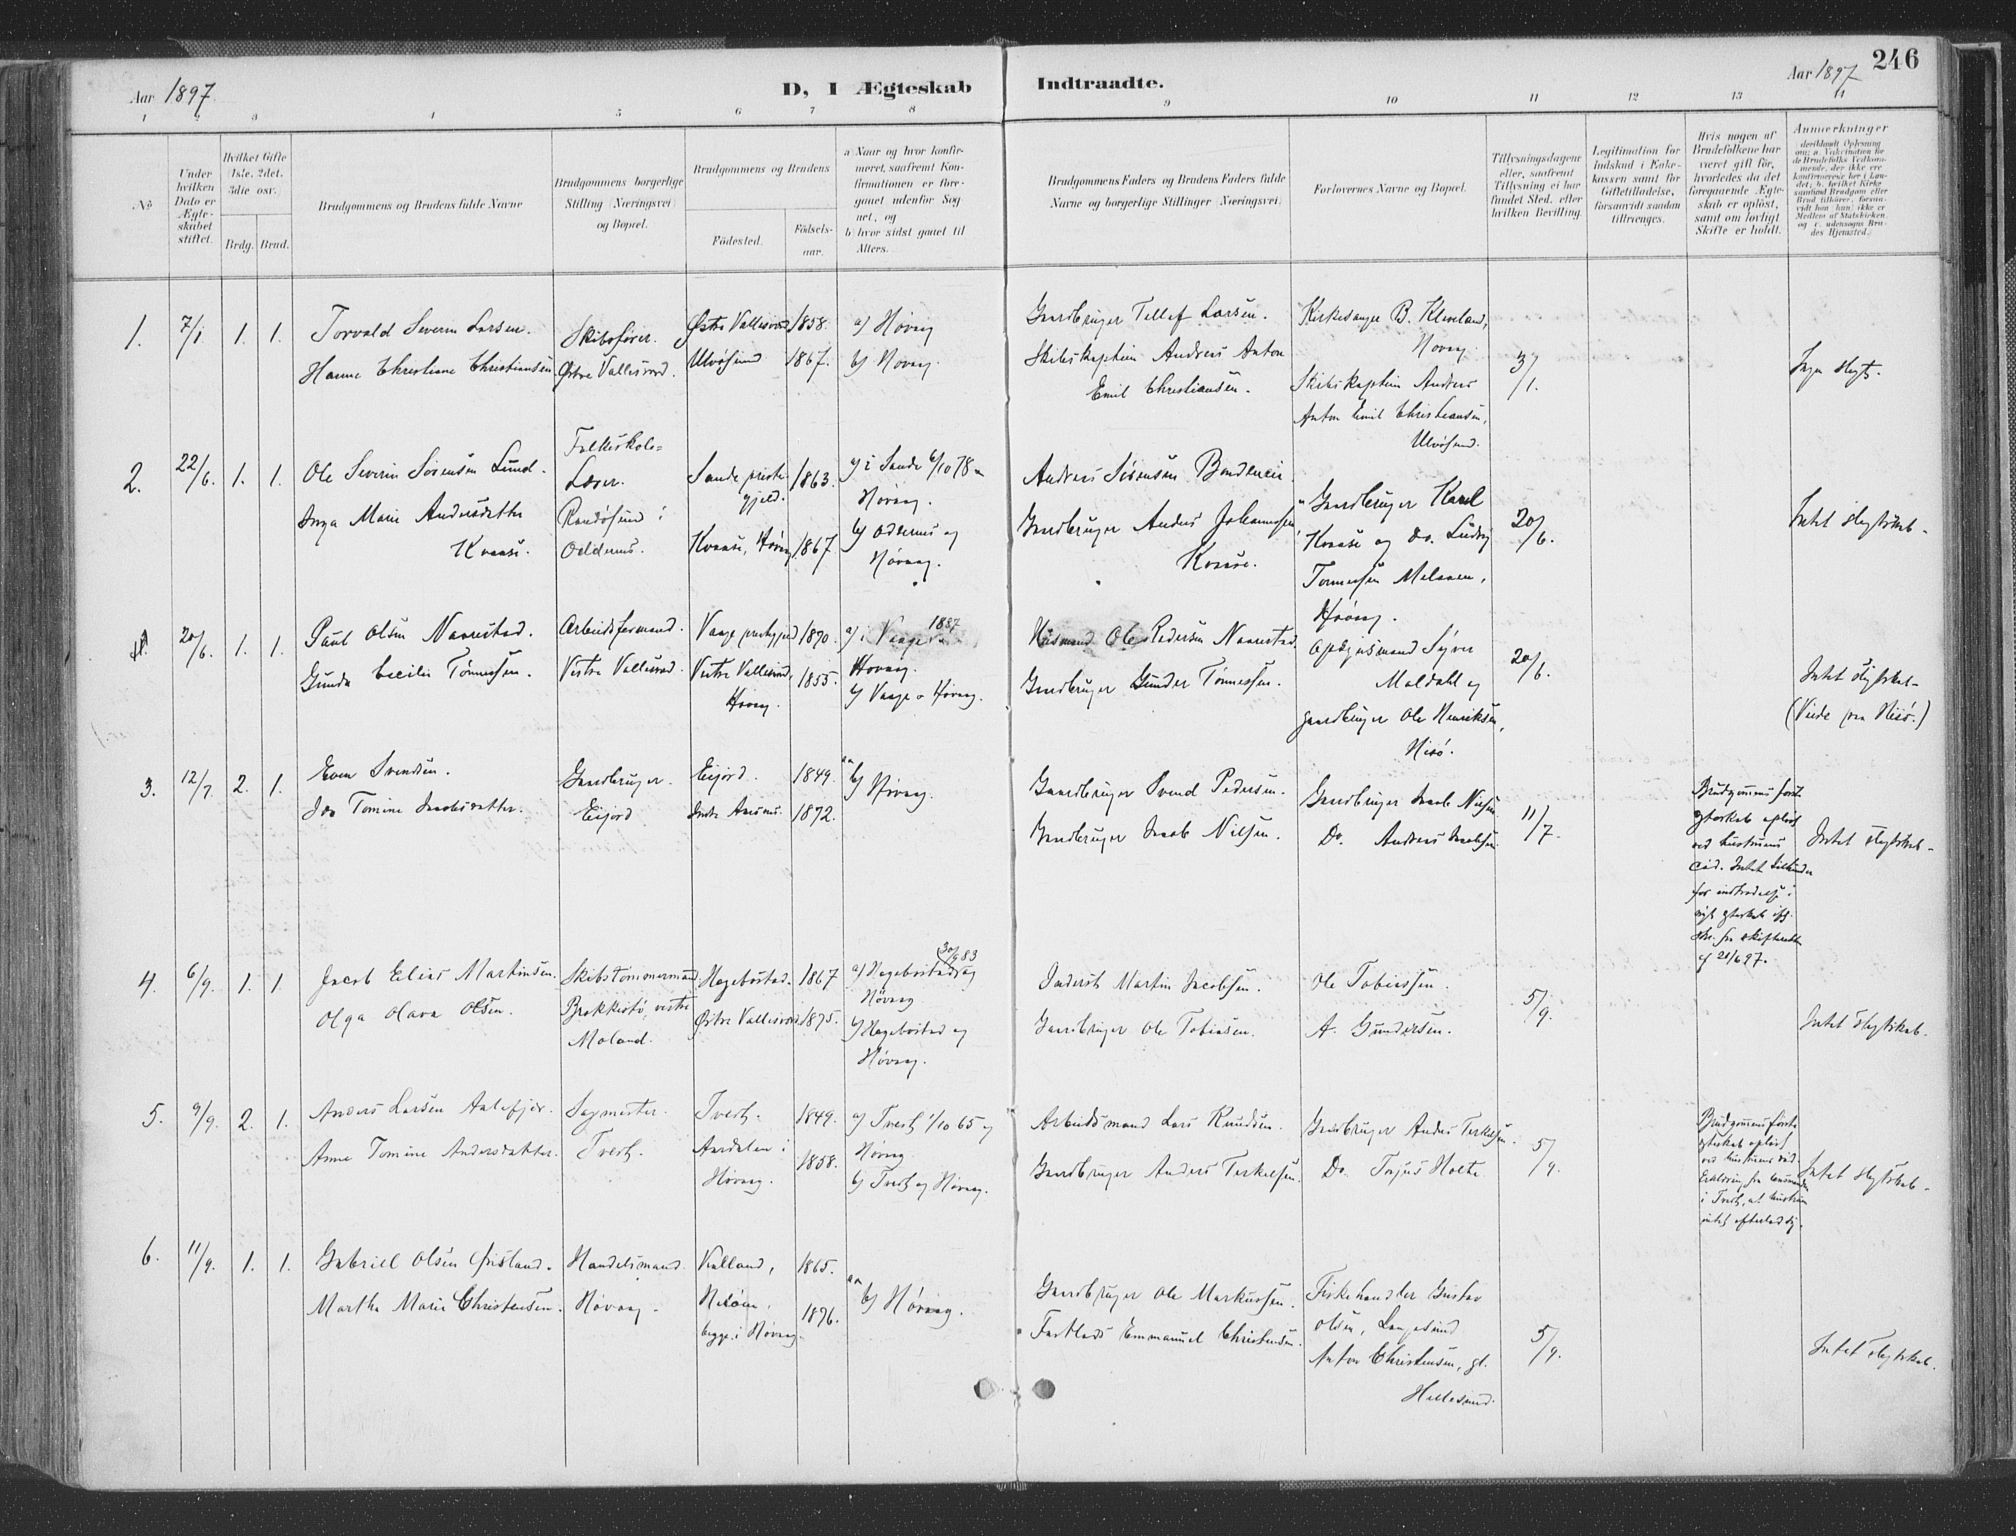 Aar 1897.
D, I Ægteskab
Indtraadte.
Aar 1897
246
1 2 3 4 5 6 7 8 9 10 11 12 13 14
No
Under hvilken Dato er Ægteskabet stiftet.
Hvilket Gifte (1ste, 2det, 3die osv.
Brdg. Brud.
Brudgommens og Brudens fulde Navne
Brudgommens borgerlige Stilling (Næringsvei) og Bopæl.
Brudgommens og Brudens
Fødested.
Fødselsaar.
a) Naar og hvor konfirmeret, saafremt Konfirmationen er foregaaet udenfor Sognet, og
b) hvor sidst gaaet til Alters.
Brudgommens Faders og Brudens Faders fulde Navne og borgerlige Stillinger (Næringsvei)
Forlovernes Navne og Bopæl.
Tillysningsdagene eller, saafremt Tillysning ei har fundet Sted, efter hvilken Bevilling.
Legitimation for Indskud i Enkekassen samt for Giftetilladelse, forsaavidt saadan tiltrænges.
Hvis nogen af Brudefolkene har været gift før, hvorledes da det foregaaende Ægteskab er opløst, samt om lovligt Skifte er holdt.
Anmerkninger
1. 7/1 1. 1.
Torvald Severin Larsen.
Hanne Christiane Christiansen
Skibsfører.
Østre Vallesverd.
Østre Vallesverd 1858.
Ulvøsund 1867.
a) Høvaag
b) Høvaag.
Gaardbruger Tellef Larsen.
Skibskaptein Andreas Anton
Emil Christiansen.
Kirkesanger B. Kleveland,
Høvaag.
Skibskaptein Andreas
Anton Emil Christiansen,
Ulvøsund.
3/1.
Ingen slegts.
2. 22/6. 1. 1.
Ole Severin Sørensen Lund.
Inga Marie Andersdatter
Kvaase.
Folkeskole-
Lærer.
Randøsund i
Oddernes.
Sande preste-
gjeld. 1863.
Kvaase, Høvaag 1867.
a) i Sande 6/10 78 –
Høvaag.
b) Oddernes og
Høvaag.
Andreas Sørensen
Gaardbruger Anders Johannesen
Kvaase.
Gaardbruger Karel
Kvaase og Do. Ludvig
Tønnesen
Høvaag.
20/6.
Intet slegtskab.
20/6. 1. 1.
Paul Olsen Naarstad.
Gunda Cecilie Tønnessen.
Arbeidsformand.
Vestre Vallesverd.
Vaage prestegjeld 1870.
Vestre Vallesverd, 1855.
Høvaag.
a) i Vaage 1887
Høvaag.
b) Vaage o Høvaag.
Husmand Ole Pedersen Naarstad
Gaardbruger Gunder Tønnessen.
Opsynsmand Syver
Moldahl og
gaardbruger Ole Henriksen,
Hisø.
20/6.
Intet slegtskab
(Viede paa Hisø.)
3. 12/7 2. 1.
Even Svendsen.
Tomine Jacobsdatter.
Gaardbruger.
Eijord
Eijord. 1849.
1872.
b) Høvaag.
Gaardbruger Svend Pedersen.
Gaardbruger Jacob Nilsen.
Gaardbruger Jacob Nielsen
Do. Andreas Jacobsen
11/7.
Brudgommens første
egteskab opløst
ved hustruens
død. Intet til hinder
for indtrædelse i
nyt egteskab ifl.
skr. fra skifteretten
af 21/6 97.
Intet slegtskab.
4. 6/9. 1. 1.
Jacob Elias Martinsen.
Olga Olava Olsen.
Skibstømmermand
Brekkestø, vestre
Moland.
Hægebostad. 1867
Østre Vallesverd 1875.
a) Hægebostad 30/9 83 og
Høvaag
b) Hægebostad og
Høvaag.
Inderst Martin Jacobsen.
Gaardbruger Ole Tobiasen.
Ole Tobiassen.
A. Gundersen.
5/9.
Intet slegtskab.
5. 9/9. 2. 1.
Anders Larsen Aalefjær.
Anne Tomine Andersdatter.
Sagmester.
Tveit.
Tveit. 1849.
Aardalen i
Høvaag. 1858.
a) Tveit 1/10 65 og
Høvaag
b) Tveit og Høvaag.
Arbeidsmand Lars Knudsen.
Gaardbruger Anders Terkelsen.
Gaardbruger Anders Terkelsen.
Do. Terjus Holte
5/9.
Brudgommens første
egteskab opløst
ved hustruens død.
Erklæring fra lensmanden
i Tveit, at hustruen
intet efterlod sig.
Intet slegtskab.
6. 11/9. 1. 1.
Gabriel Olsen Øisland.
Martha Marie Christensen.
Handelsmand
Høvaag.
Kalland, 1865.
1876.
begge i Høvaag
b) Høvaag.
Gaardbruger Ole Markussen.
Emmanuel Christensen.
Fiskehandler Gustav
Olsen, Langesund
Anton Christensen, gl.
Hellesund.
5/9.
Intet slegtskab.